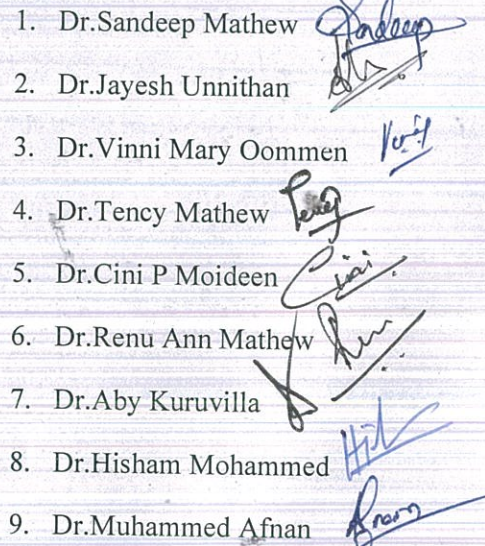 1. Dr.Sandeep Mathew Sandeep
2. Dr.Jayesh Unnithan
3. Dr.Vinni Mary Oommen
4. Dr.Tency Mathew Tency
5. Dr.Cini P Moideen Cini
6. Dr.Renu Ann Mathew Renu
7. Dr.Aby Kuruvilla
8. Dr.Hisham Mohammed
9. Dr.Muhammed Afnan